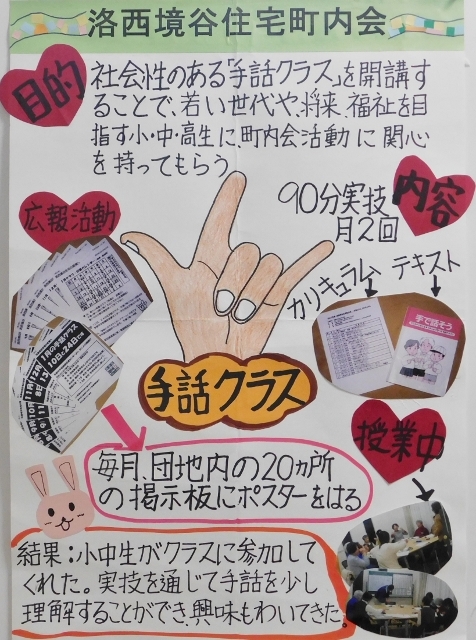 洛西境谷住宅町内会
目的
社会性のある「手話クラス」を開講す
ることで、若い世代や、将来、福祉を目
指す小・中・高生に、町内会活動に関心
を持ってもらう
内容
90分実技
月2回
広報活動
カリキュラム
テキスト
手で話そう
手話クラス
授業中
毎月、団地内の20ヵ所
の掲示板にポスターをはる
結果：小中生がクラスに参加して
くれた。実技を通じて手話を少し
理解することができ、興味もわいてきた。